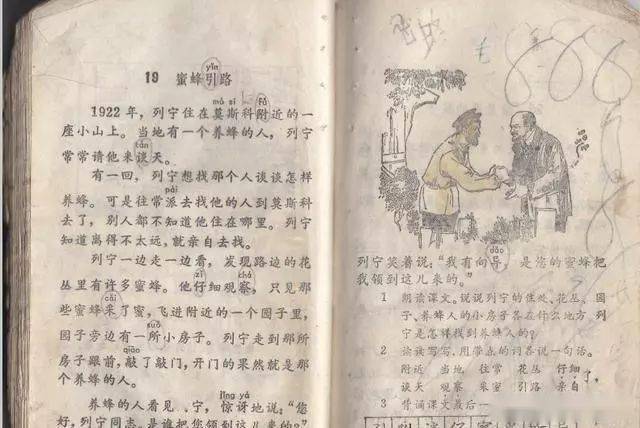 19 蜜蜂引路
yǐn
1922年，列宁住在莫斯科附近的一
mò sī fù
座小山上。当地有一个养蜂的人，列宁
常常请他来谈天。
tán
有一回，列宁想找那个人谈谈怎样
养蜂。可是往常派去找他的人到莫斯科
pài
去了，别人都不知道他住在哪里。列宁
知道离得不太远，就亲自去找。
列宁一边走一边看，发现路边的花
丛里有许多蜜蜂。他仔细观察，只见那
zǐ chá
些蜜蜂采了蜜，飞进附近的一个园子里，
cǎi
园子旁边有一所小房子。列宁走到那所
suǒ
房子跟前，敲了敲门，开门的果然就是那
qiāo
个养蜂的人。
养蜂的人看见列宁，惊讶地说：“您
jīng yà
好，列宁同志，是谁把您领到这儿来的？”
列宁笑着说：“我有向导，是您的蜜蜂把
dǎo
我领到这儿来的。”
1 朗读课文。说说列宁的住处、花丛、园
子、养蜂人的小房子各在什么地方，列
宁是怎样找到养蜂人的？
2 读读写写，用带点的词各说一句话。
附近 当地 往常 花丛 仔细
谈天 观察 采蜜 引路 亲自
3 背诵课文最后一